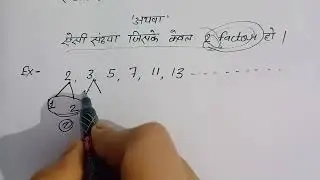 'अथवा'
ऐसी संख्या जिसके केवल 2 factor हो।
Ex- 2, 3, 5, 7, 11, 13 ----------
1 2
②